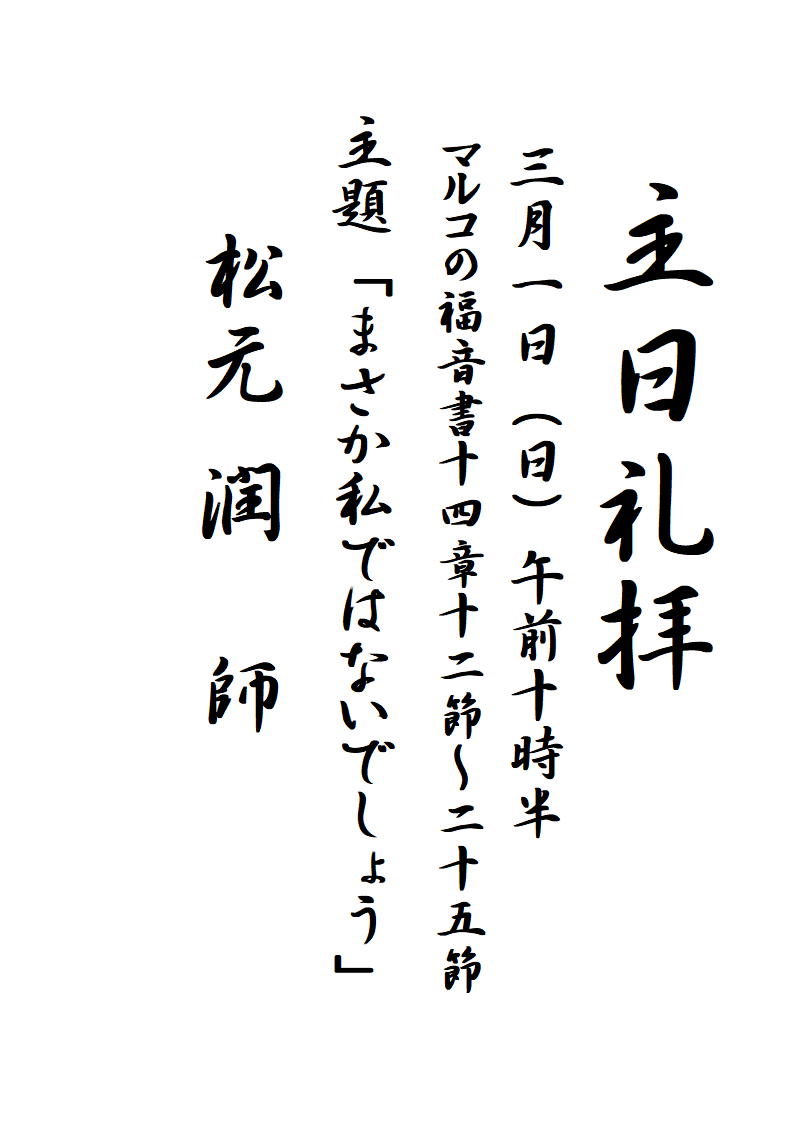 主日礼拝
三月一日（日）午前十時半
マルコの福音書十四章十二節～二十五節
主題「まさか私ではないでしょう」
松元 潤 師